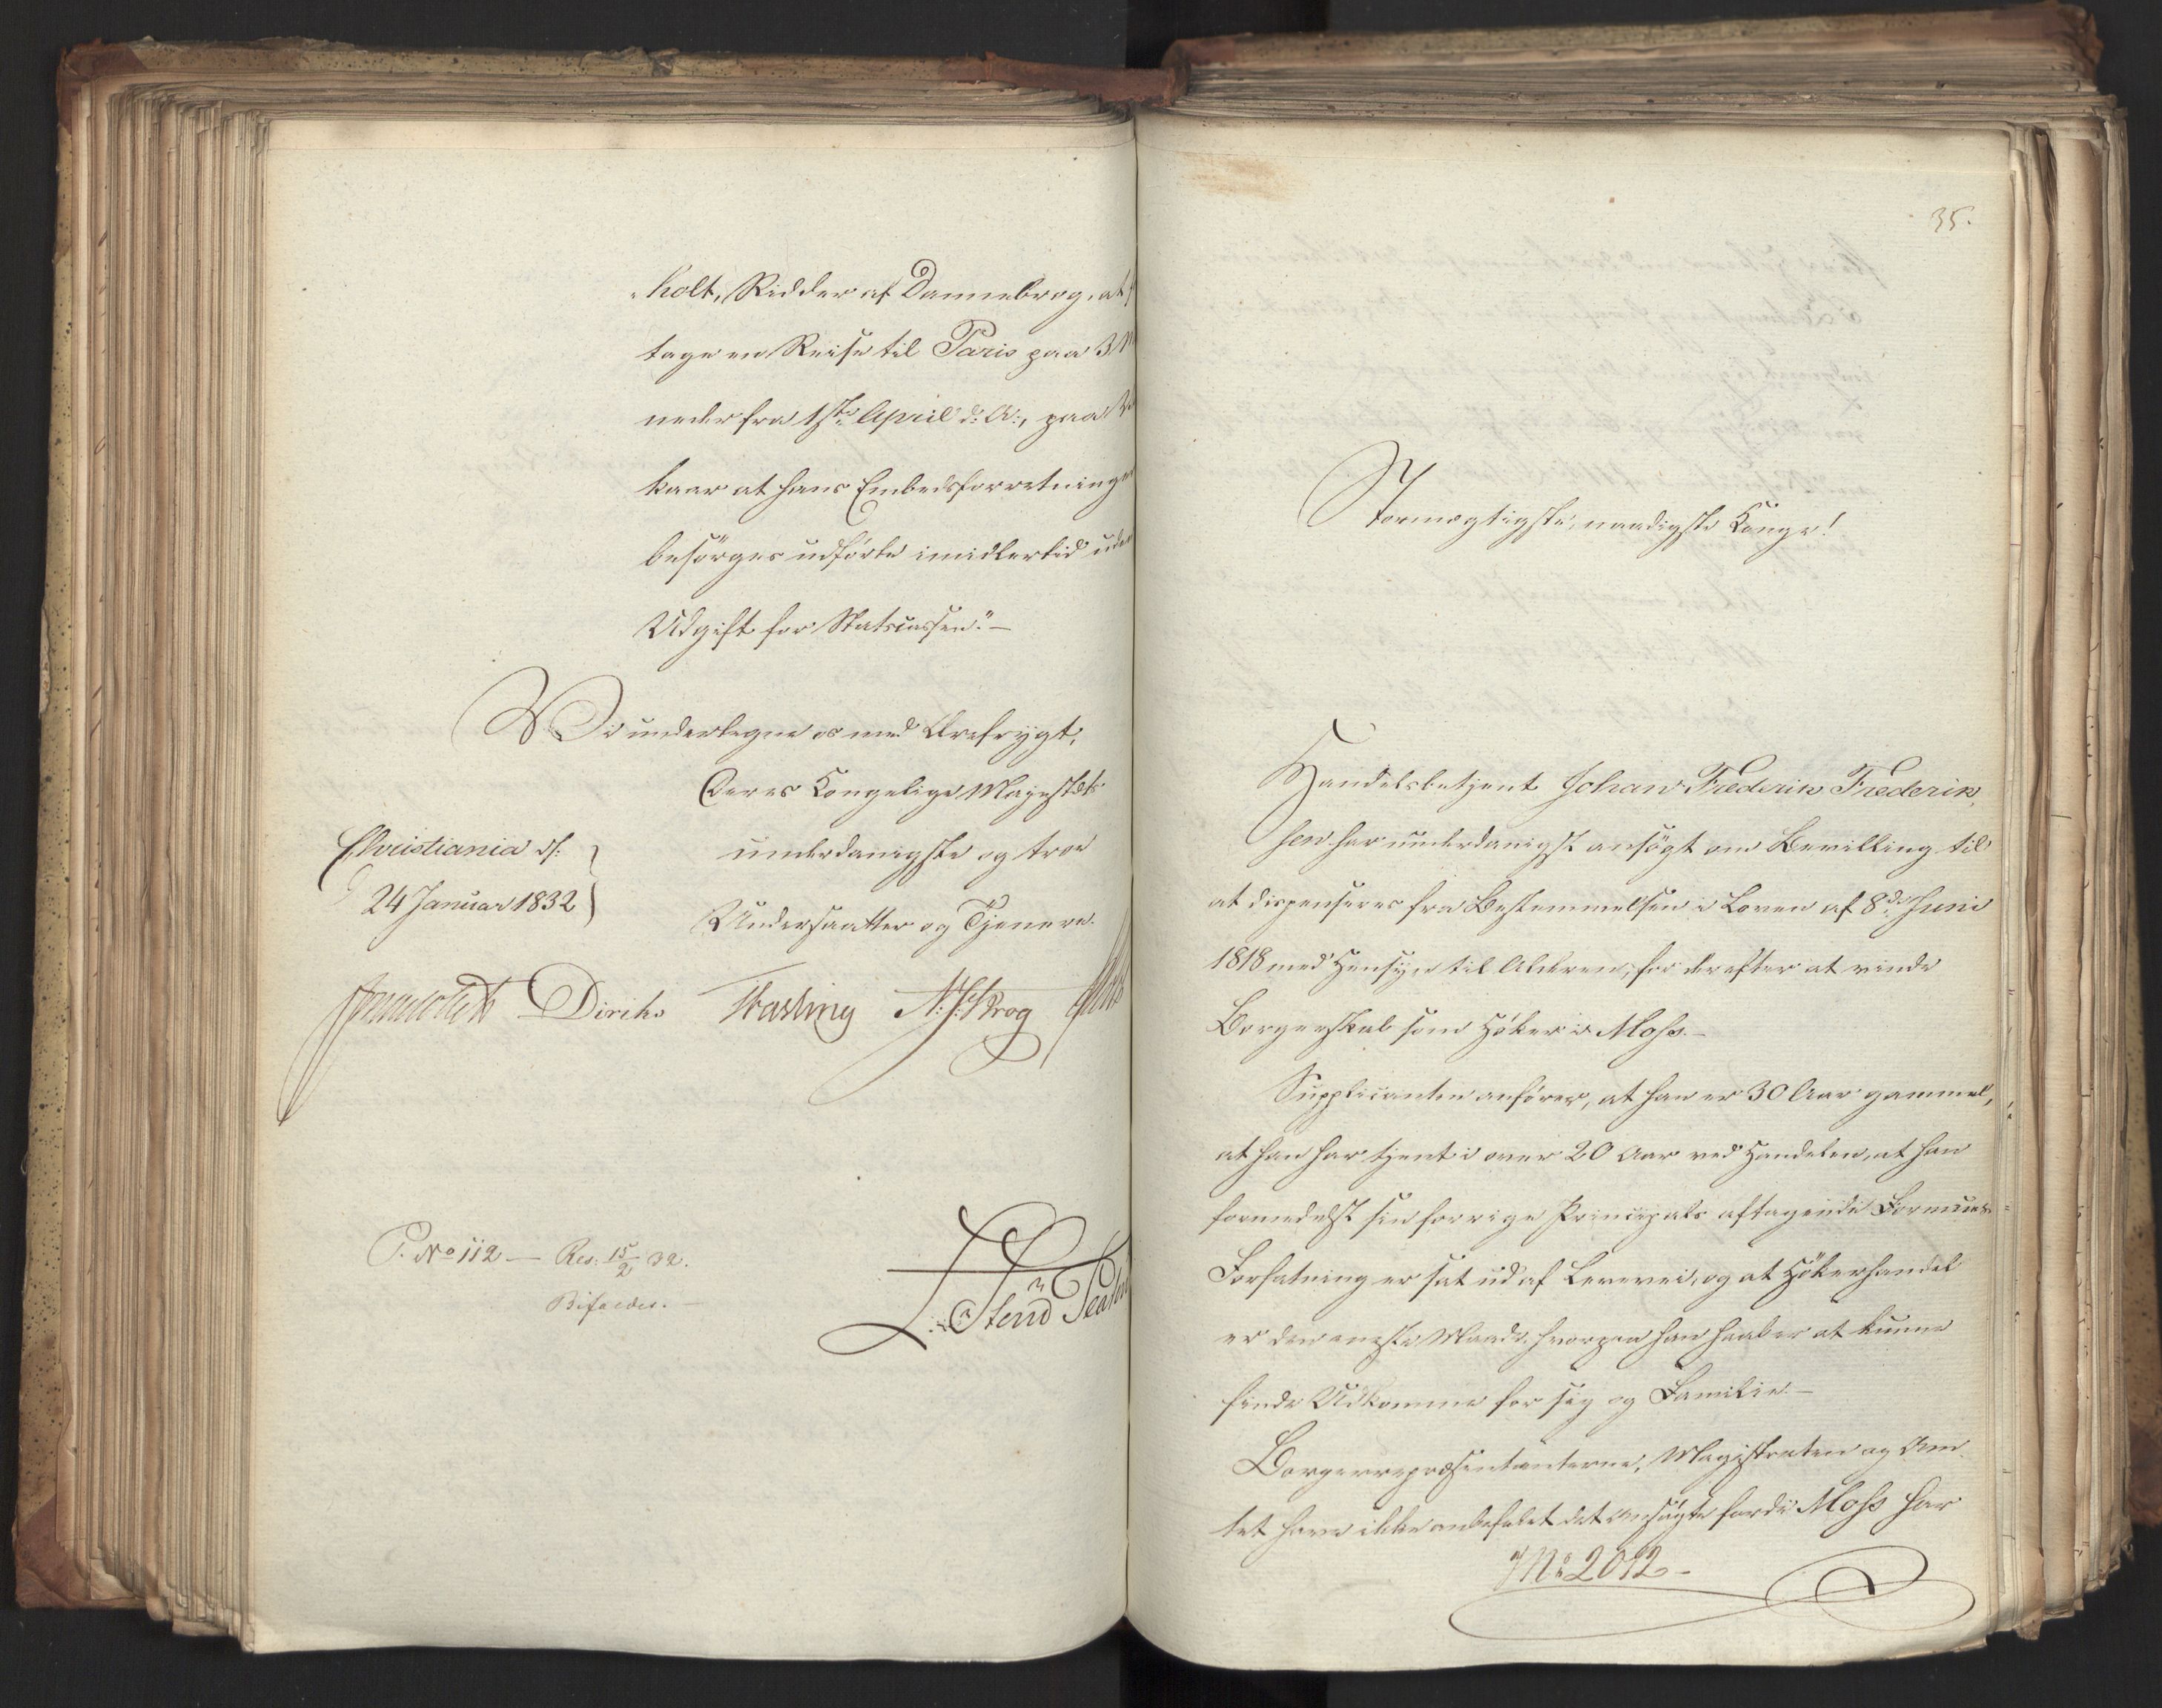 holt, Ridder af Dannebrog, at
tage en Reise til Paris paa 3 M
neder fra 1ste April d: A:, paa Vil
kaar at hans Embedsforretninger
besørges udførte imidlertid uden
Udgift for Statscassen." —
Vi undertegne os med Ærefrygt,
Deres Kongelige Majestæts
underdanigste og troe
Undersaatter og Tjenere.
Christiania d:
24 Januar 1832
Diriks N: J: Krog
P. No 112 — Res: 15/2 32.
Bifaldes. —
35.
Stormægtigste, naadigste Konge!
Handelsbetjent Johan Frederik Frederik,
sen har underdanigst ansøgt om Bevilling til
at dispenseres fra Bestemmelsen i Loven af 8de Juni
1818 med Hensyn til Alderen, for derefter at vinde
Borgerskab som Høker i Moss. —
Supplicanten anfører, at han er 30 Aar gammel,
at han har tjent i over 20 Aar ved Handelen, at han
formedelst sin forrige Principals aftagende Formues-
Forfatning er sat ud af Levevei, og at Høkerhandel
er den eneste Maade, hvorpaa han haaber at kunne
finde Udkomme for sig og Familie. —
Borgerrepræsentanterne, Magistraten og Am
tet have ikke anbefalet det Ansøgte fordi Moss har
No 2012 -